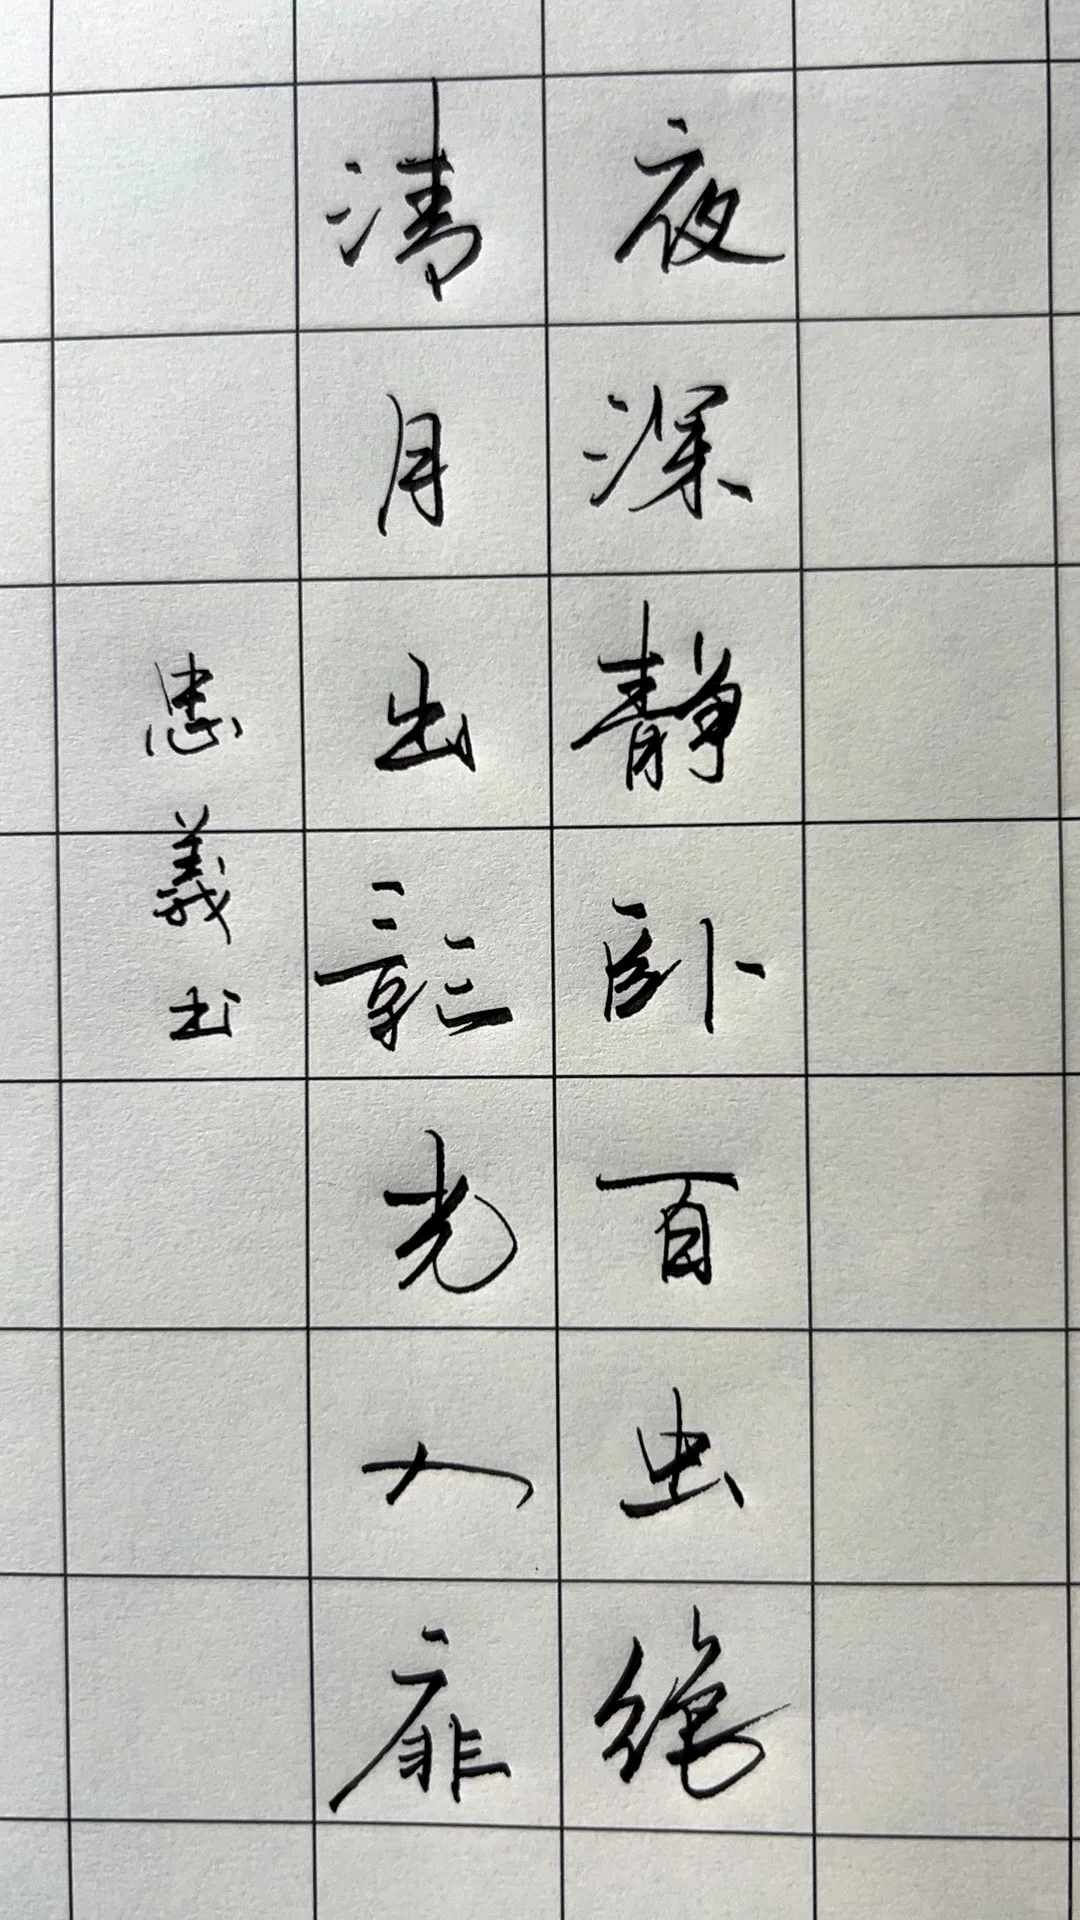 夜深静卧百虫绝
清月出光入扉
忠義书